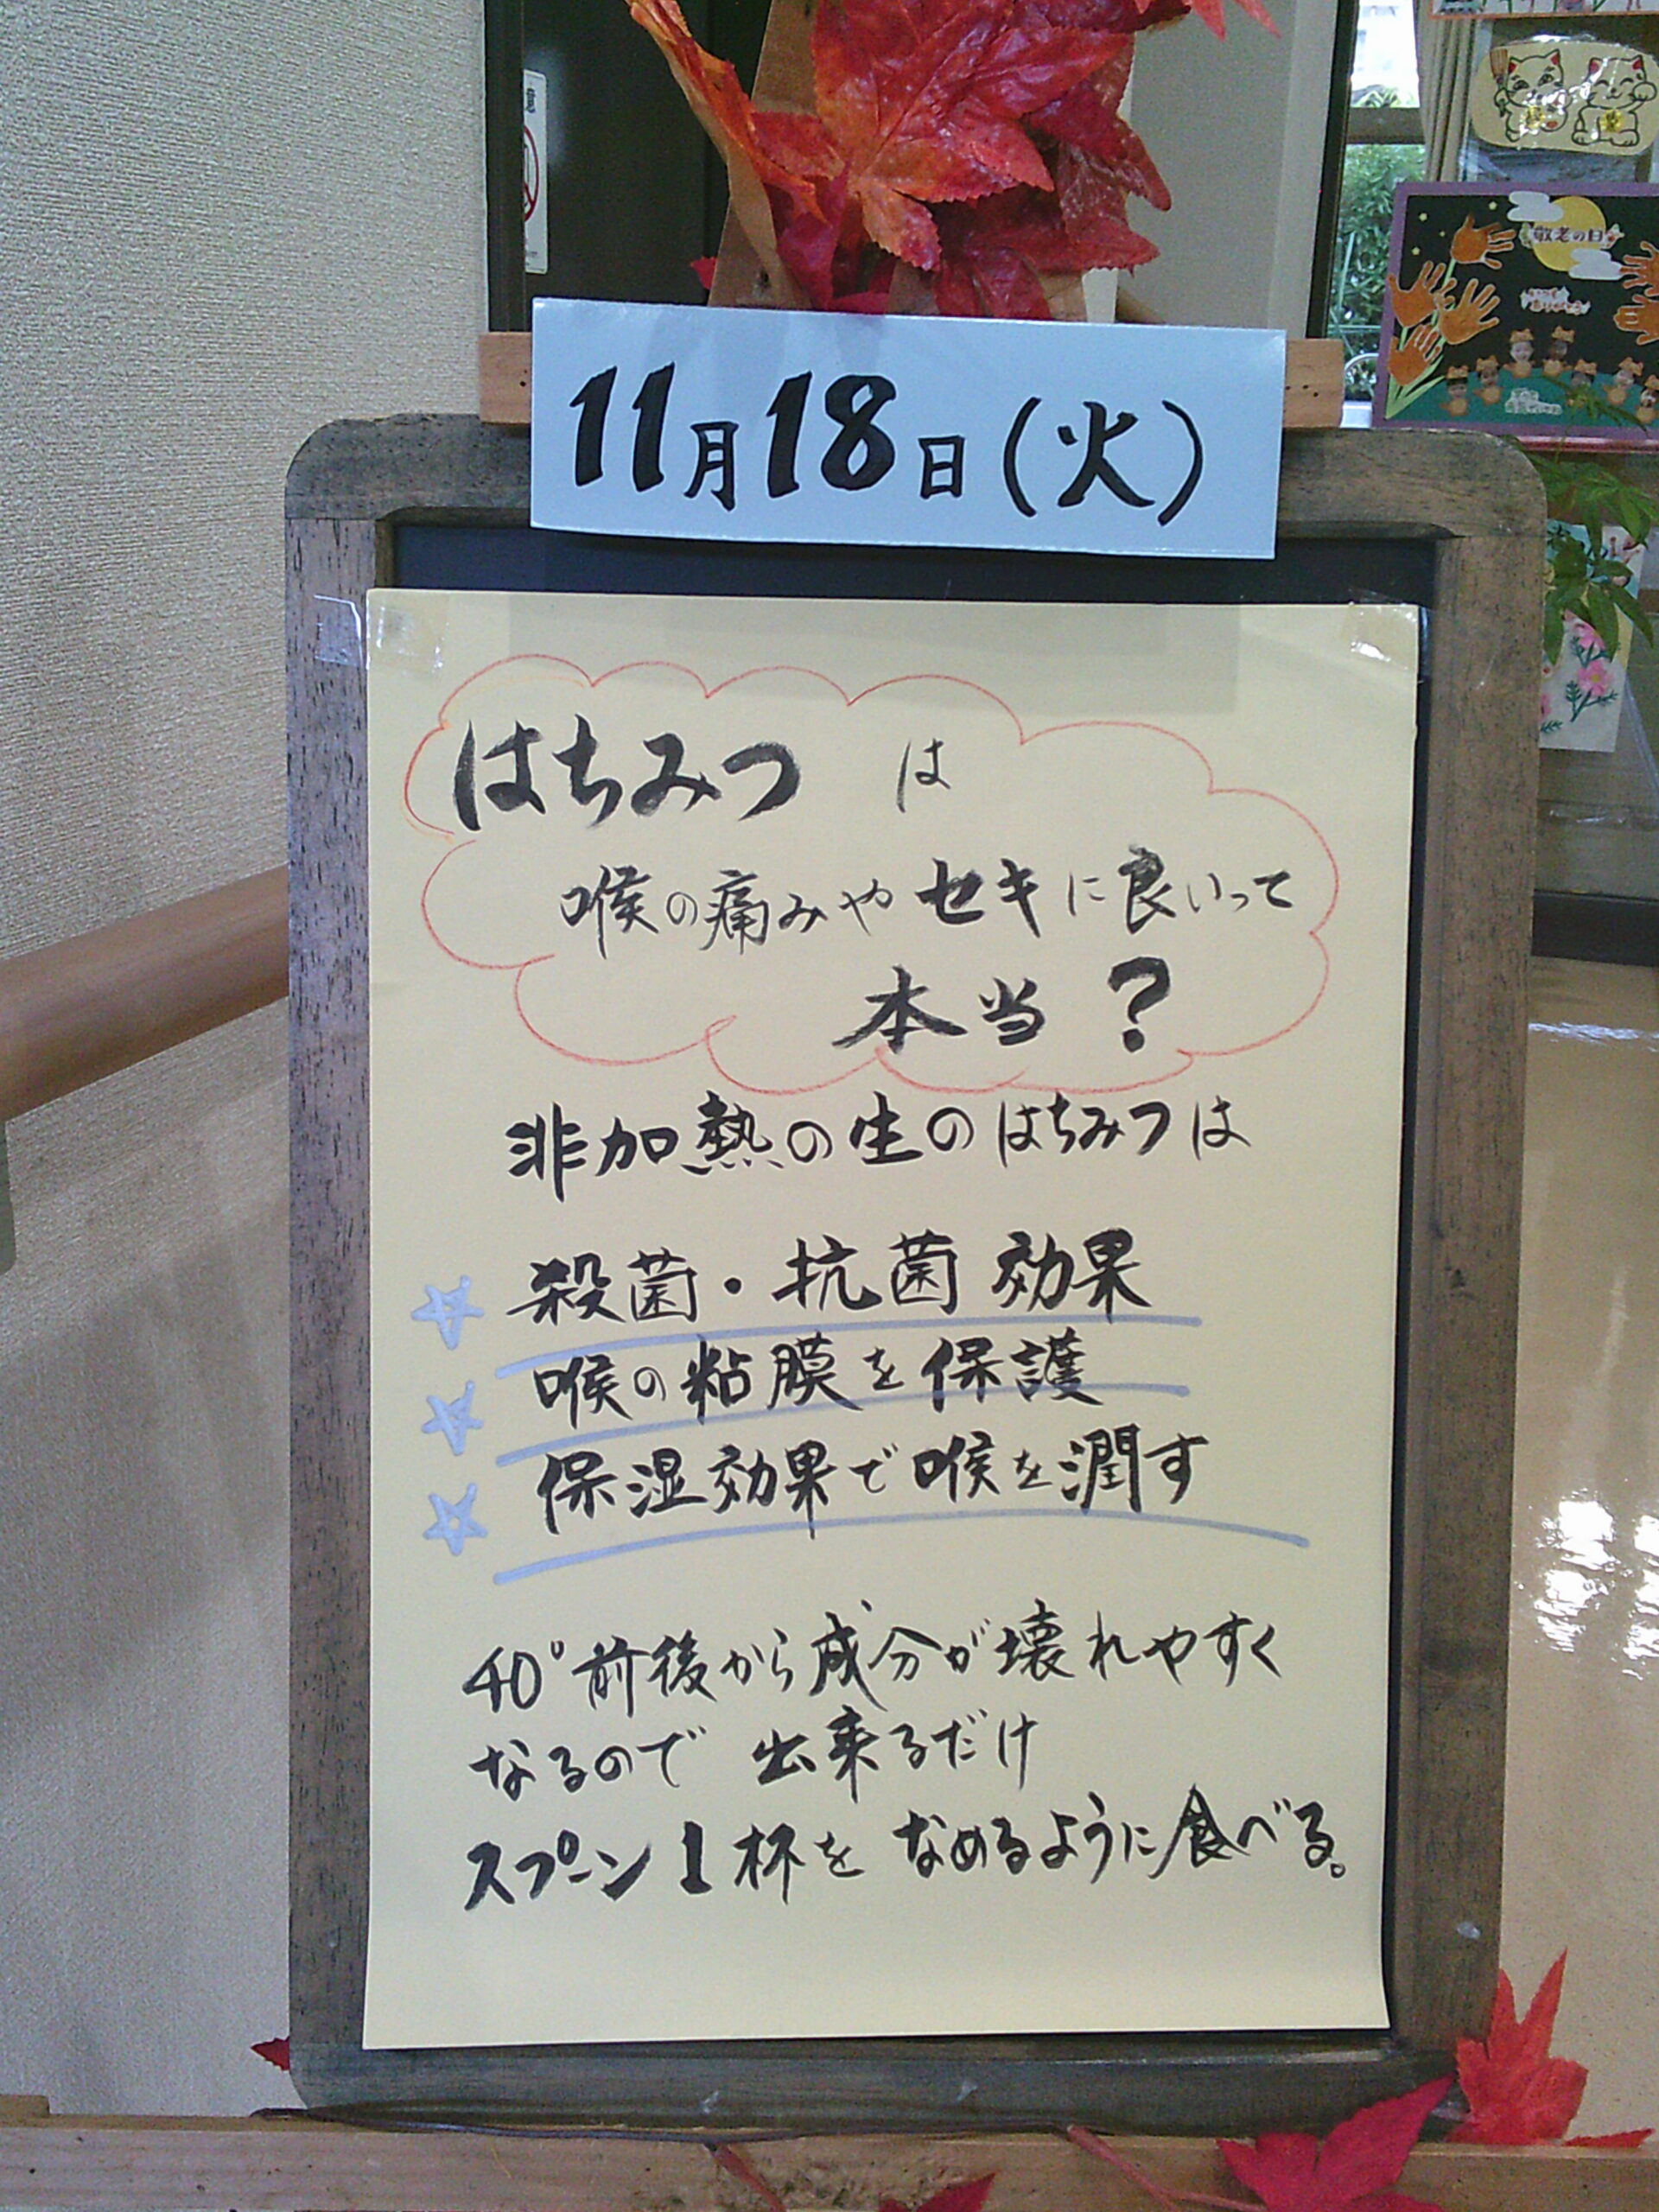 敬老の日
11月18日(火)
はちみつ は
喉の痛みや セキ に 良いって
本当?
非加熱の生のはちみつは
☆ 殺菌・抗菌 効果
☆ 喉の粘膜を保護
☆ 保湿効果で喉を潤す
40°前後から成分が壊れやすく
なるので 出来るだけ
スプーン1杯を なめるように食べる。